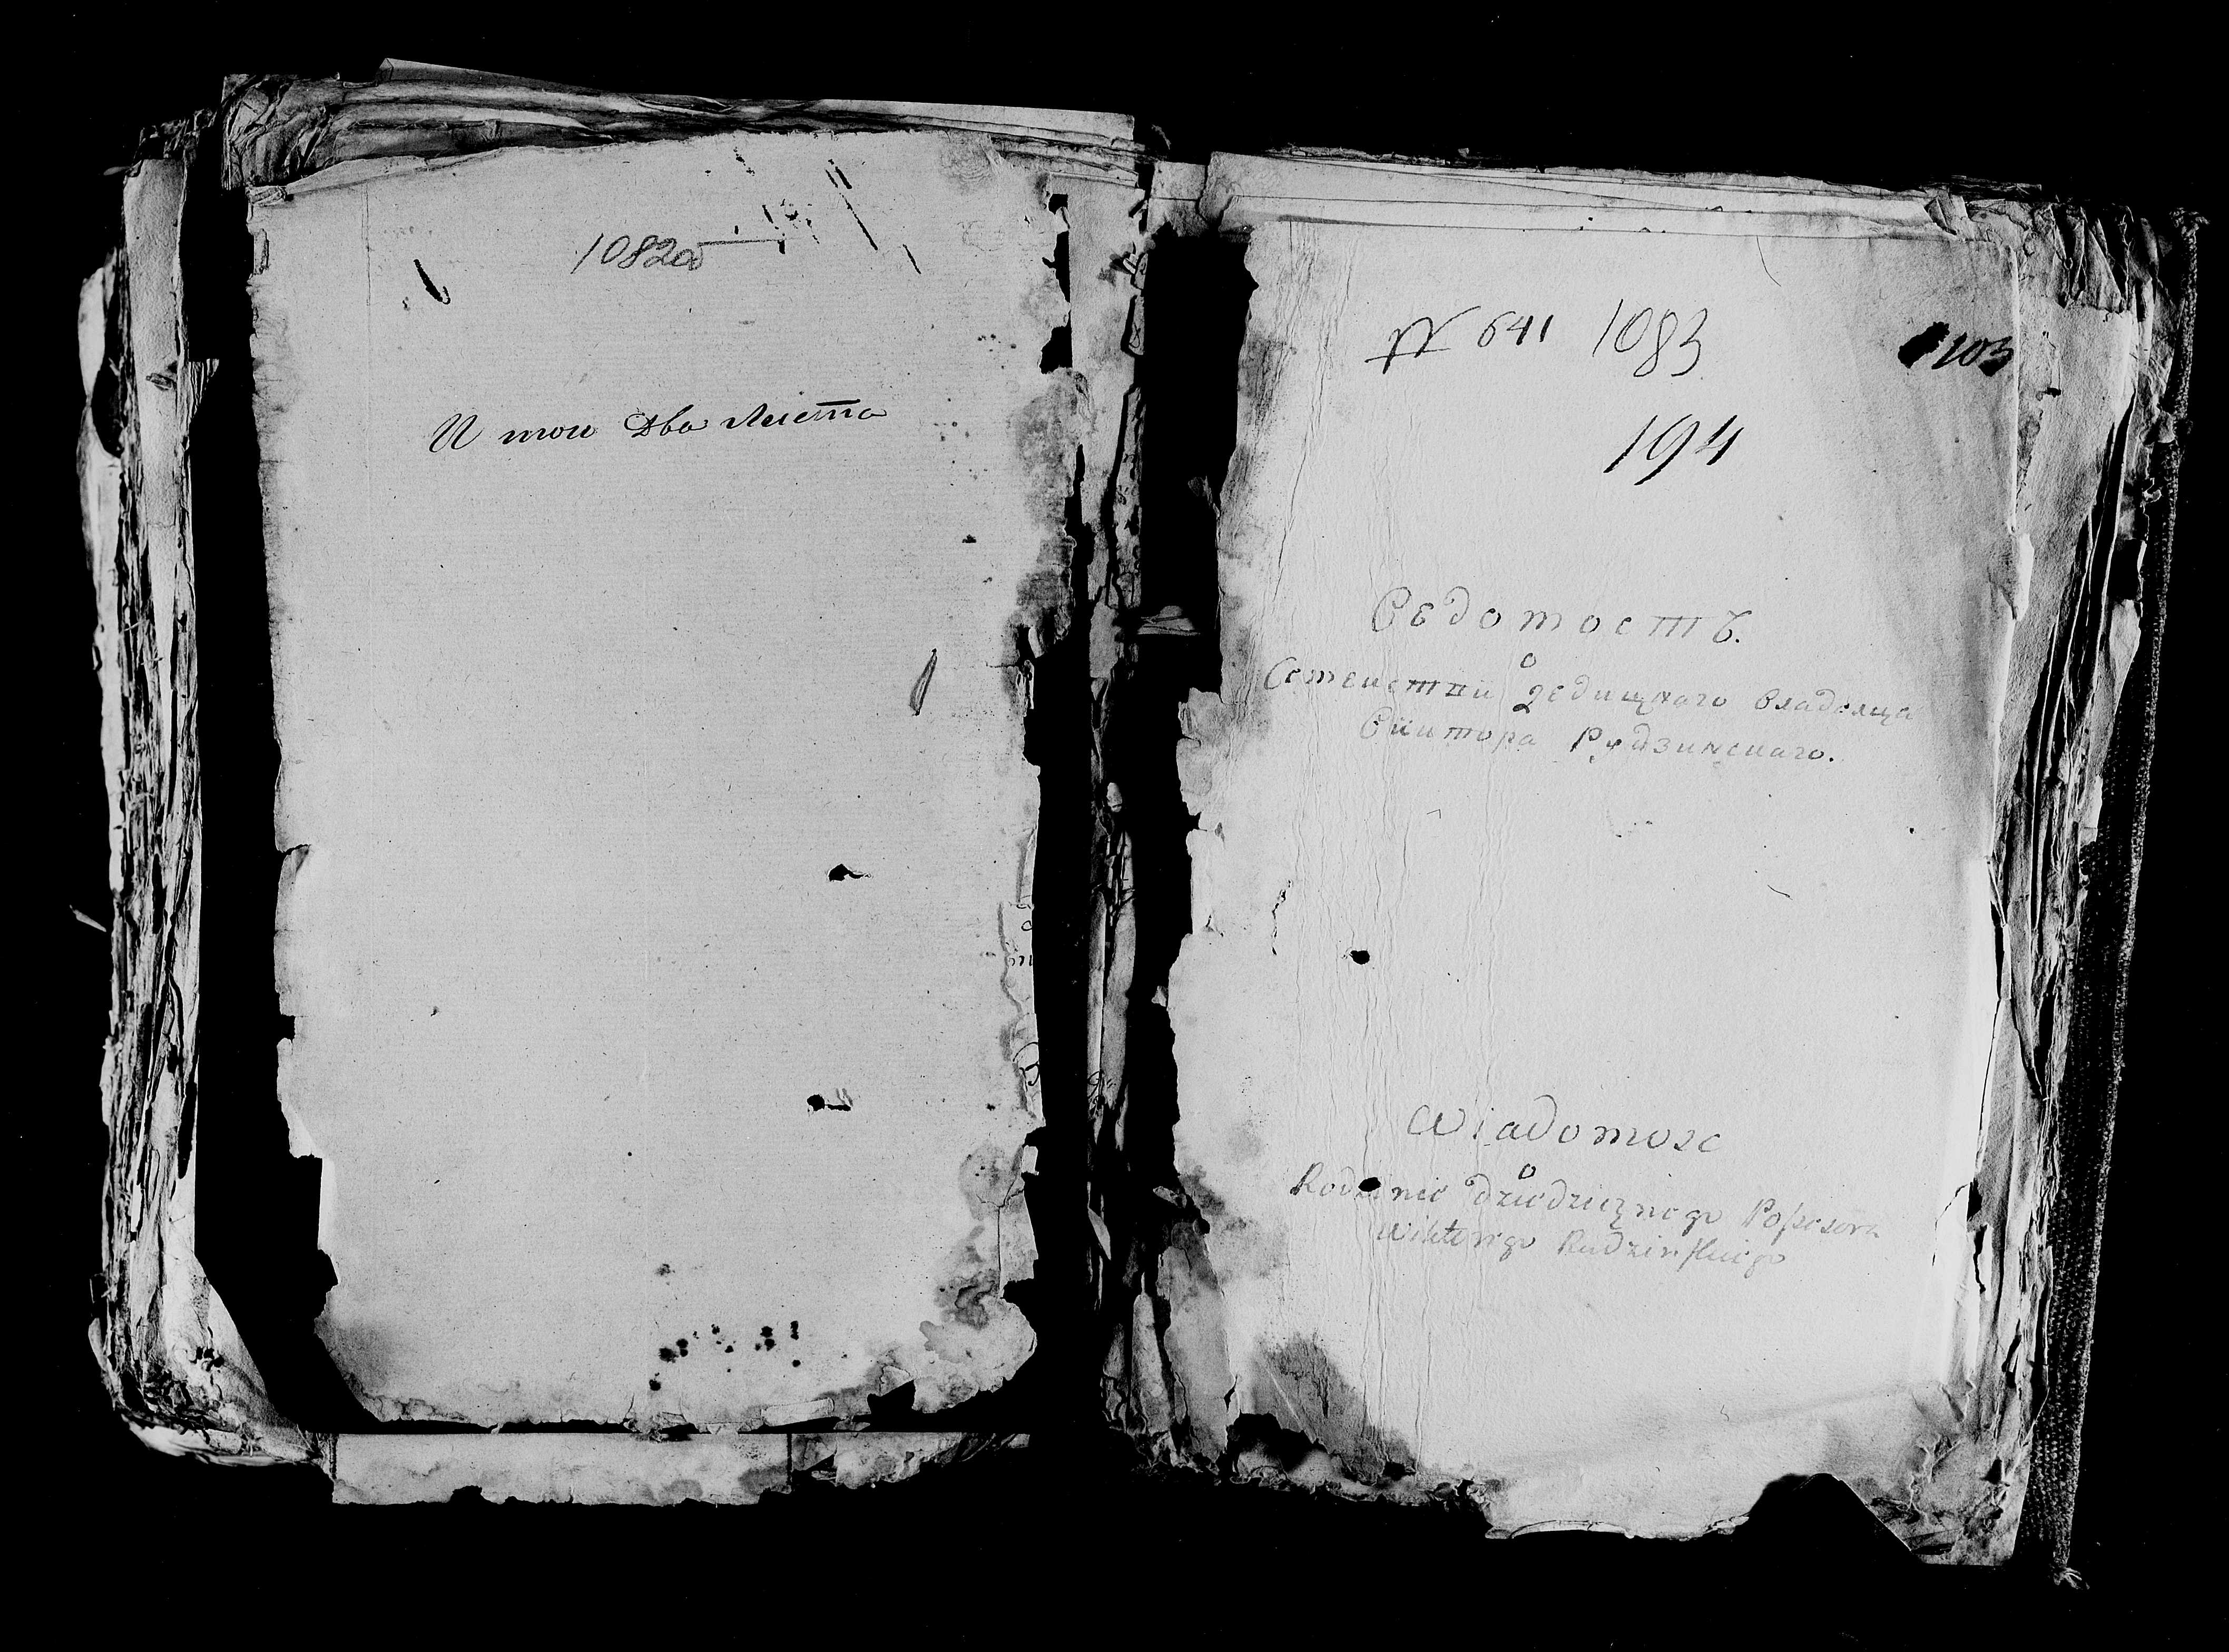 1082об
И тои два листа
№ 641 1083
103
194
Ведомость.
о
Семеистви дедищнаго владелца
Виктора Рудзинскаго.
Wiadomosc
o
Rodzinie dziedzicznego Possesora
Wiktorego Rudzinskiego